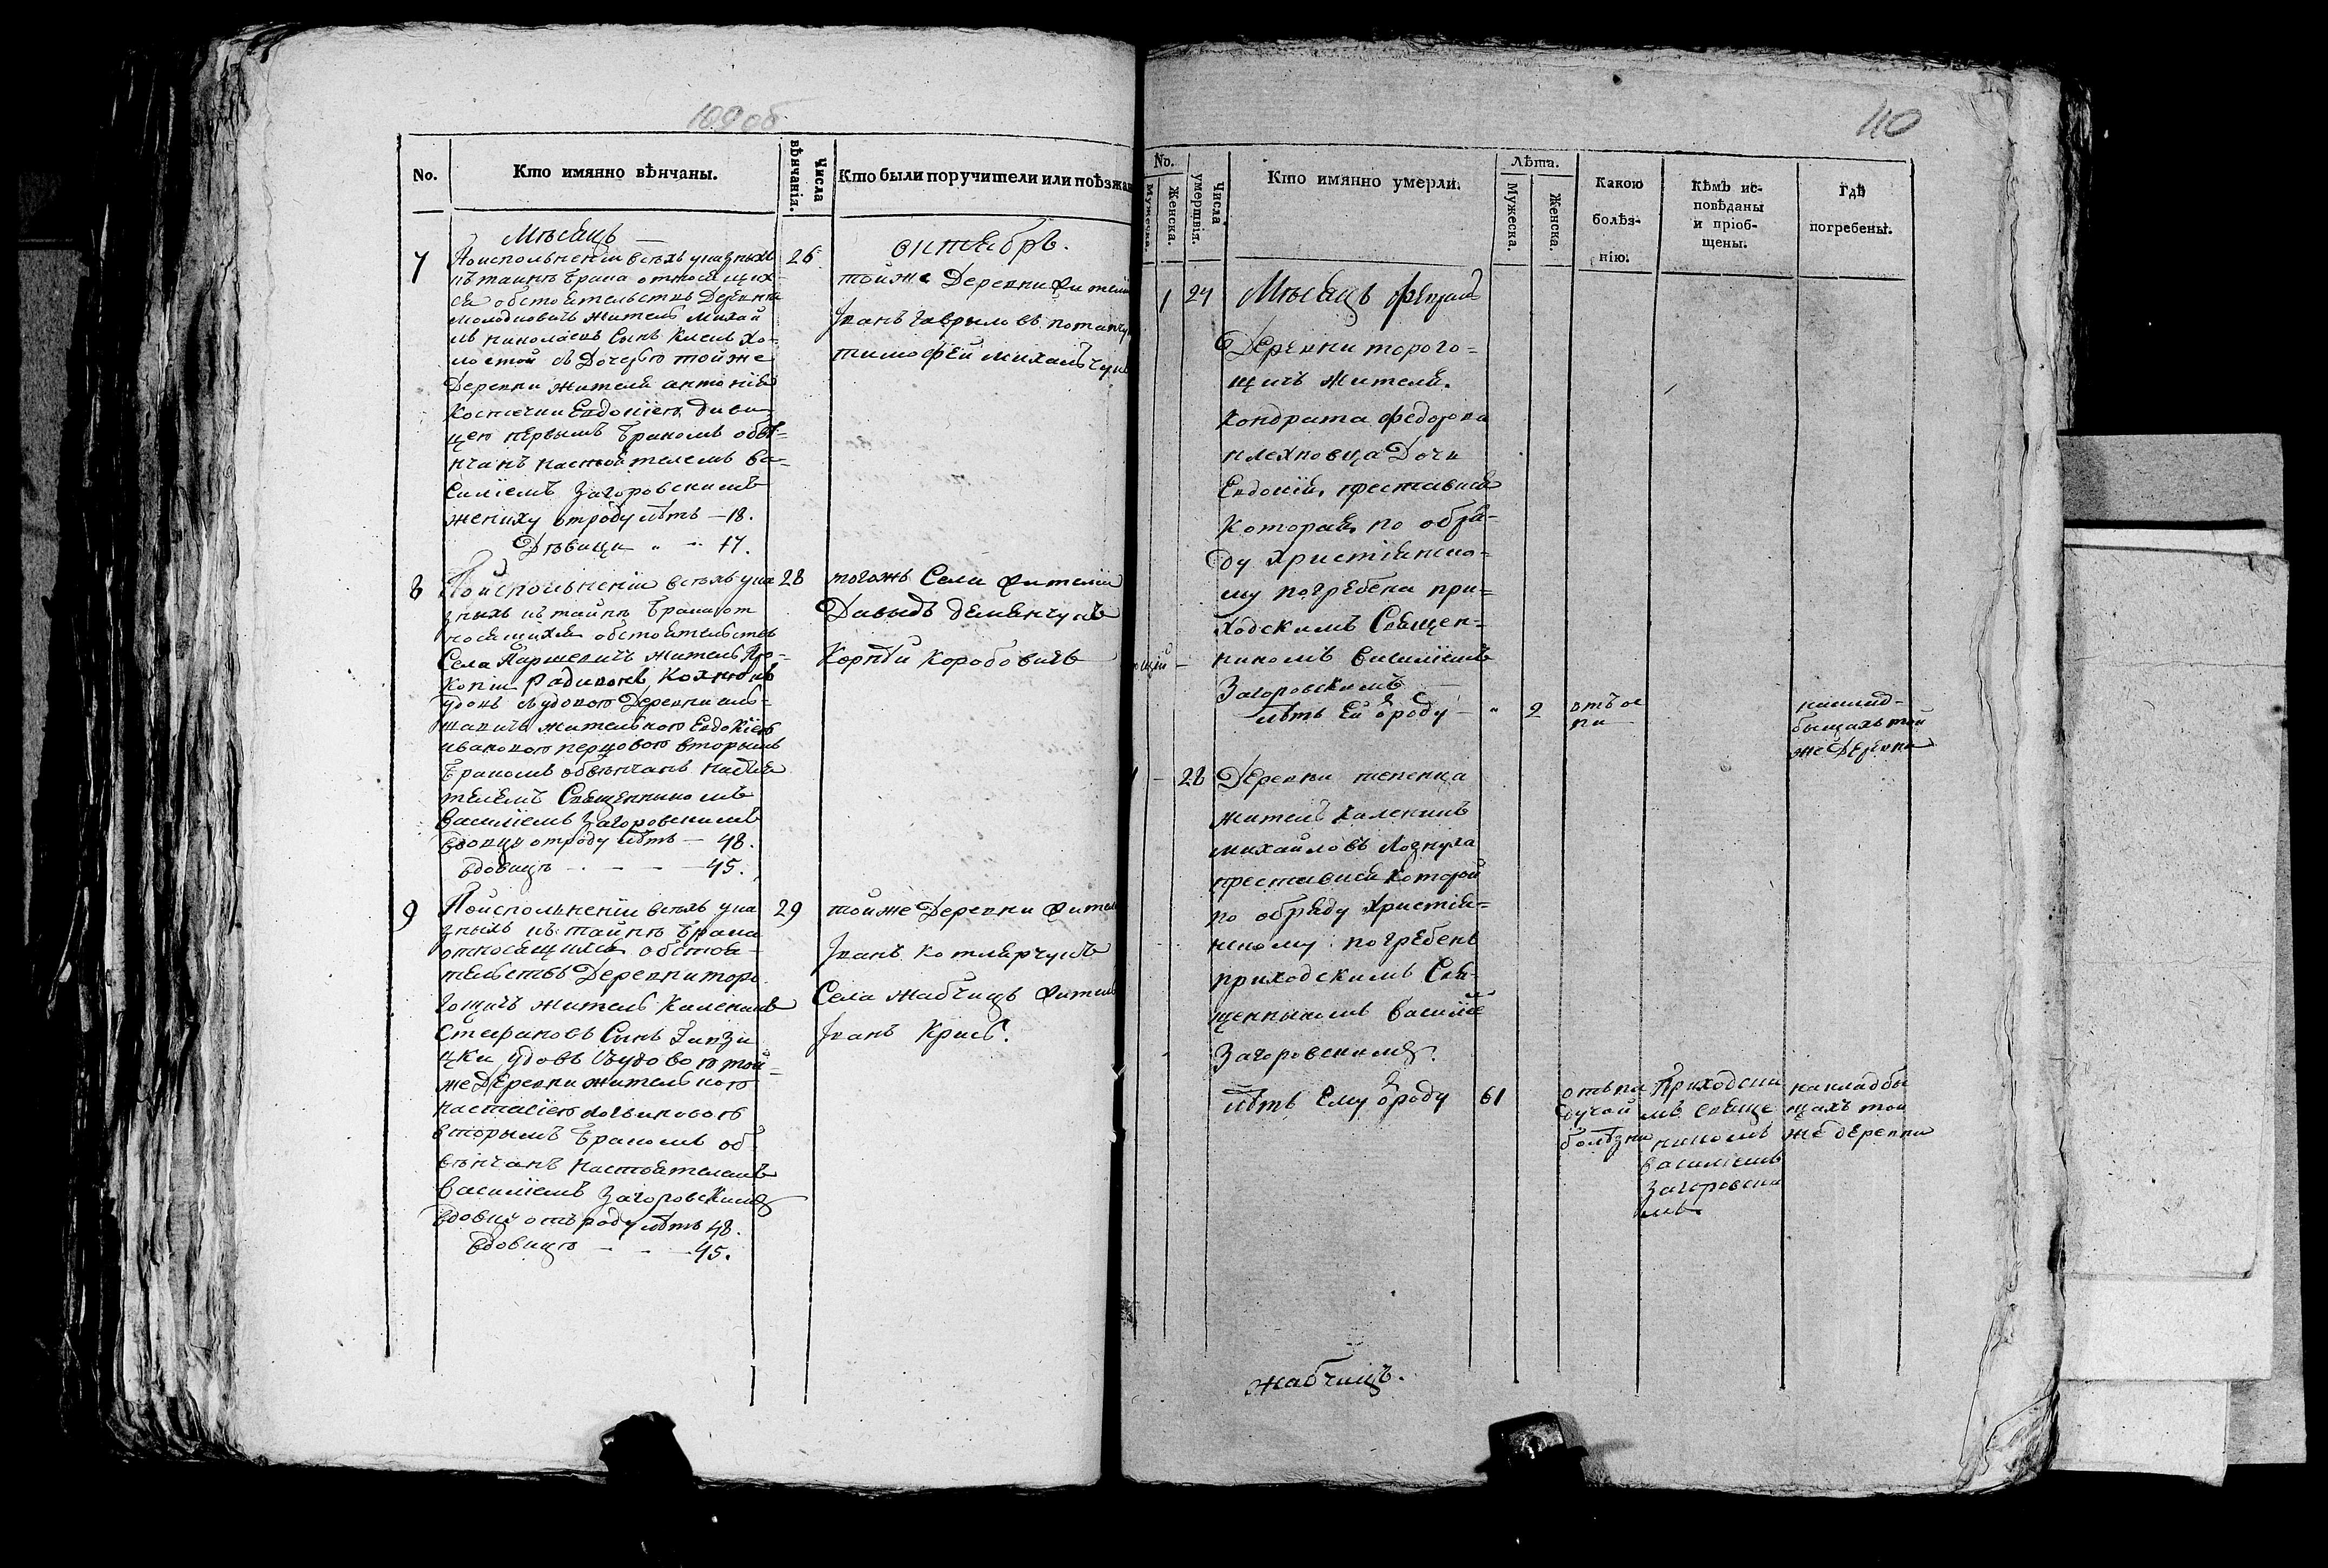 109 об
No.
Кто имянно вѣнчаны.
Числа вѣнчанія.
Кто были поручители или поѣзжа
Мѣсяцъ
октябръ.
7
По исполненіи всѣхъ ука зныхъ
26
къ таинѣ брака относящих
ся обстоятельствъ Деревни
жители Михай
лъ николаевъ Сынъ хо-
лостой съ Дочерью тойже
Деревни жителя антонія
Евдокіею дѣви
цею первымъ бракомъ обвѣ-
нчанъ настоятелемъ Ва-
силіемъ Загоровскимъ
жениху отроду лѣтъ — 18.
Дѣвици " - 17.
тойже Деревни жители
Іванъ Гаврыловъ
тимофей
8
По исполненіи всѣхъ ука
28
зныхъ къ тайнѣ брака от
носящихся обстоятельствъ
Села Паршевичъ житель Про-
копій Радионовъ
удовъ съ удовою Деревни
жителькою Евдокіею
ивановою вторымъ
бракомъ обвѣнчанъ настоя
телемъ Священникомъ
Василіемъ Загоровскимъ
вдовцу отроду лѣтъ — 48.
вдовицѣ - - - 45.
тогожъ Села жители
Давыдъ Демянчукъ
Корнѣй Коробовичъ
9
По исполненіи всѣхъ ука
29
зныхъ къ тайнѣ брака
относящихся обстоя-
тельствъ Деревни торо
гошичъ житель Каленикъ
Стефановъ Сынъ
удовъ съ удовою той-
же Деревни жителькою
настасіею
вторымъ бракомъ об
вѣнчанъ настоятелемъ
Василіемъ Загоровскимъ
вдовцу отъ роду лѣтъ 48.
вдовицѣ - - - 45.
тойже Деревни жители
Іванъ Котлярчукъ
Села жабчицъ житель
Іванъ Крис.
110
No.
Мужеска.
Женска.
Числа умершвія.
Кто имянно умерли.
Лѣта.
Мужеска.
Женска.
Какою болѣз- нію.
Кѣмъ ис- повѣданы и пріоб- щены.
Гдѣ погребены.
1 24 Мѣсяцъ
Деревни торого-
щичъ жителя.
Кондрата федорова
Дочь
Евдокія, преставися
которая по обря-
ду христіянско-
му погребена при-
ходскимъ Священ-
никомъ Василіемъ
Загоровскимъ
лѣтъ Ей ѿроду — " 2
отъ ос
пи
на клад-
бищахъ той
же Деревни
1 - 28 Деревни
житель Каленикъ
михайловъ
преставися который
по обряду Христія-
нскому погребенъ
приходскимъ Свя-
щенныкомъ Василіе
Загоровскимъ.
лѣтъ Ему ѿроду 61
отъ па
дучой
болѣзни
Приходски
мъ Свяще
никомъ
Василіемъ
Загоровски
мъ
на кладби
щахъ той
же деревни
жабчицъ.